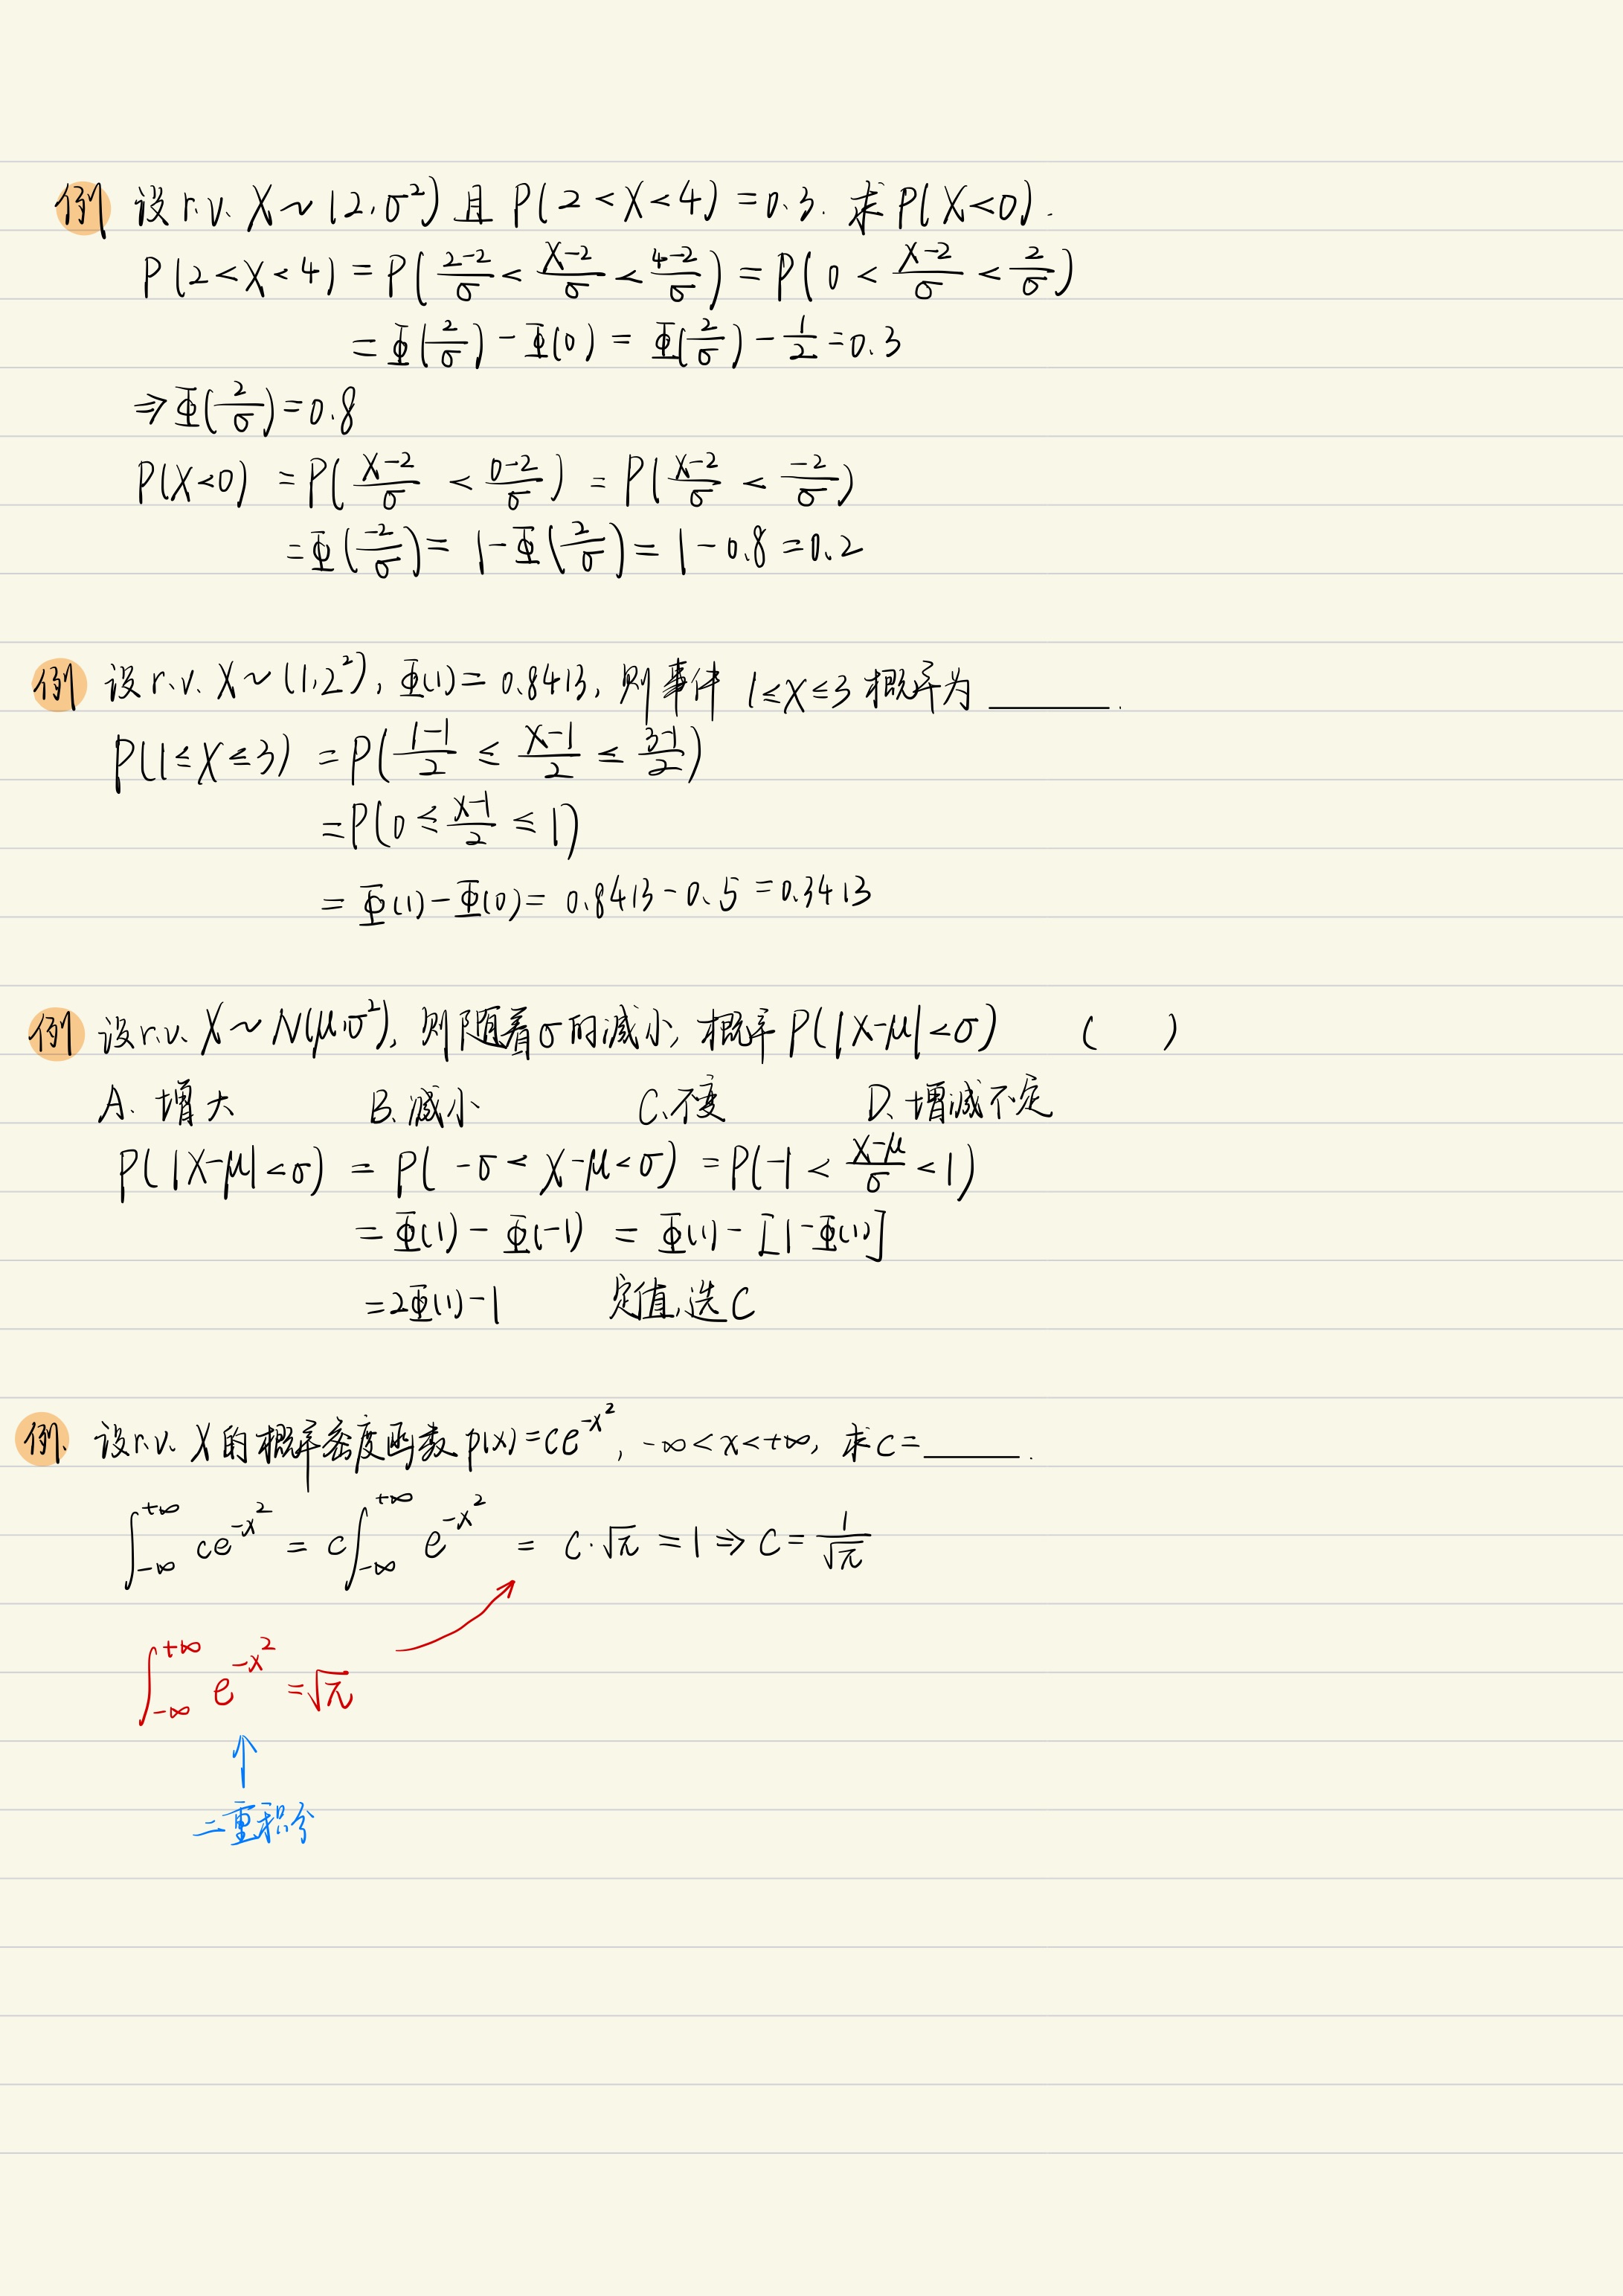 例 设 r.v. X~(2,σ²) 且 P(2<X<4)=0.3. 求 P(X<0).
P(2<X<4) = P((2-2)/σ < (X-2)/σ < (4-2)/σ) = P(0 < (X-2)/σ < 2/σ)
= Φ(2/σ) - Φ(0) = Φ(2/σ) - 1/2 = 0.3
⇒ Φ(2/σ) = 0.8
P(X<0) = P((X-2)/σ < (0-2)/σ) = P((X-2)/σ < -2/σ)
= Φ(-2/σ) = 1-Φ(2/σ) = 1-0.8 = 0.2
例 设 r.v. X~(1,2²), Φ(1)=0.8413, 则事件 1≤X≤3 概率为 ______.
P(1≤X≤3) = P((1-1)/2 ≤ (X-1)/2 ≤ (3-1)/2)
= P(0 ≤ (X-1)/2 ≤ 1)
= Φ(1)-Φ(0) = 0.8413-0.5 = 0.3413
例 设 r.v. X~N(μ,σ²), 则随着σ的减小, 概率 P(|X-μ|<σ) ( )
A. 增大 B. 减小 C. 不变 D. 增减不定
P(|X-μ|<σ) = P(-σ < X-μ < σ) = P(-1 < (X-μ)/σ < 1)
= Φ(1) - Φ(-1) = Φ(1) - [1-Φ(1)]
= 2Φ(1)-1 定值,选C
例. 设r.v. X的概率密度函数 p(x)=ce^{-x²}, -∞<x<+∞, 求c=______.
∫_{-∞}^{+∞} ce^{-x²} = c∫_{-∞}^{+∞} e^{-x²} = c·√π = 1 ⇒ c = 1/√π
∫_{-∞}^{+∞} e^{-x²} = √π
↑
二重积分